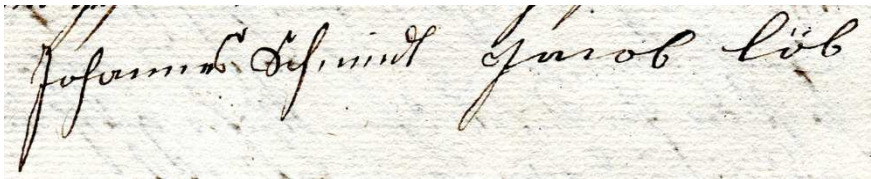 Johannes Schmidt Jacob Löb